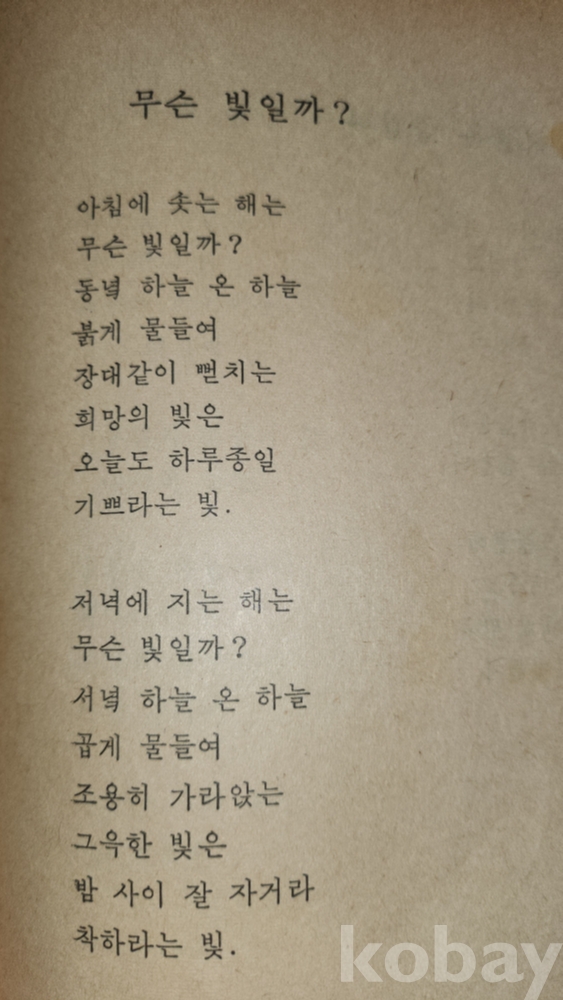 무슨 빛일까?
아침에 솟는 해는
무슨 빛일까?
동녘 하늘 온 하늘
붉게 물들여
장대같이 뻗치는
희망의 빛은
오늘도 하루종일
기쁘라는 빛.
저녁에 지는 해는
무슨 빛일까?
서녘 하늘 온 하늘
곱게 물들여
조용히 가라앉는
그윽한 빛은
밤 사이 잘 자거라
착하라는 빛.
kobay